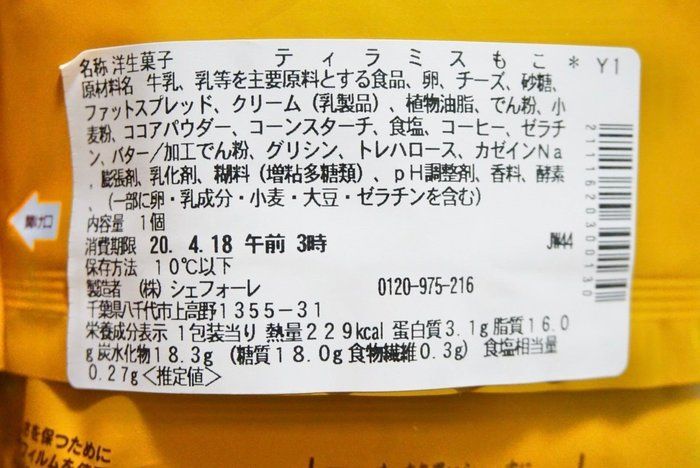 名称 洋生菓子 ティラミスもこ * Y1
原材料名 牛乳、乳等を主要原料とする食品、卵、チーズ、砂糖、
ファットスプレッド、クリーム（乳製品）、植物油脂、でん粉、小
麦粉、ココアパウダー、コーンスターチ、食塩、コーヒー、ゼラチ
ン、バター／加工でん粉、グリシン、トレハロース、カゼインNa
、膨張剤、乳化剤、糊料（増粘多糖類）、pH調整剤、香料、酵素
、（一部に卵・乳成分・小麦・大豆・ゼラチンを含む）
内容量 1個
消費期限 20. 4.18 午前 3時 JW44
保存方法 10℃以下
製造者 （株）シェフォーレ 0120-975-216
千葉県八千代市上高野1355-31
栄養成分表示 1包装当り 熱量229kcal 蛋白質3.1g 脂質16.0
g 炭水化物18.3g （糖質18.0g 食物繊維0.3g） 食塩相当量
0.27g＜推定値＞
2111162030001 30
開け口
を保つために
フィルムを